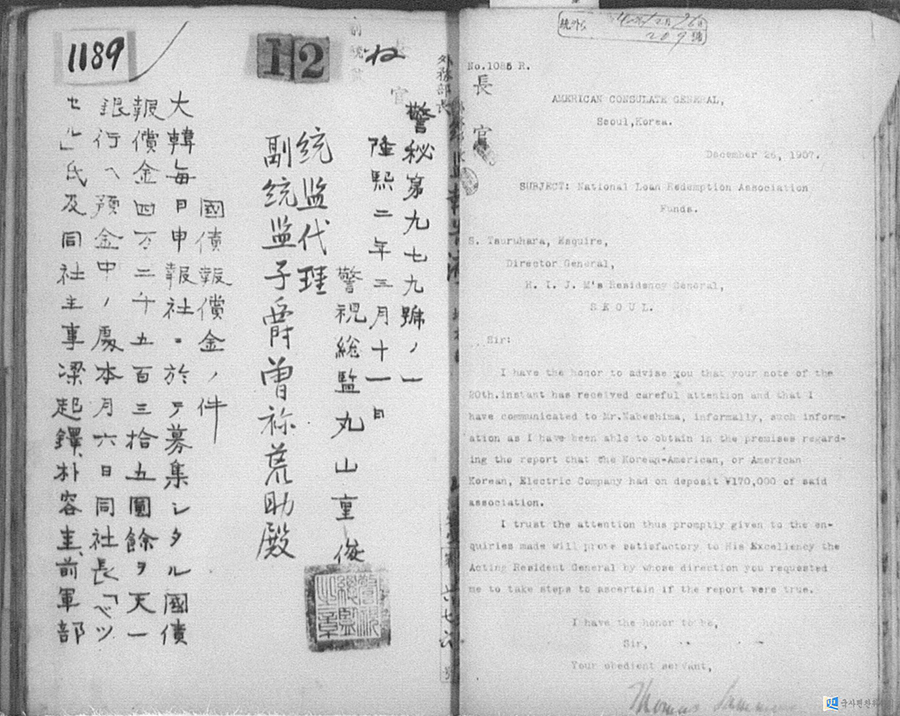 1189
12
警秘第九七九號ノ一
隆熙二年三月十一日
警視總監丸山重俊
統监代理
副統监子爵曾祢荒助殿
國債報償金ノ件
大韓每日申報社ニ於テ募集シタル國債
報償金四万二千五百三拾五圜餘ヲ天一
銀行ヘ預金中ノ處本月六日同社長「ベツ
セル」氏及同社主事梁起鐸、朴容圭、前軍部
209號
No.1085 R.
長官
AMERICAN CONSULATE GENERAL,
Seoul, Korea.
December 26, 1907.
SUBJECT: National Loan Redemption Association
Funds.
S. Tsuruhara, Esquire,
Director General,
H. I. J. M's Residency General,
S E O U L.
Sir:
I have the honor to advise you that your note of the
20th.instant has received careful attention and that I
have communicated to Mr.Nabeshima, informally, such inform-
ation as I have been able to obtain in the premises regard-
ing the report that the Korean-American, or American
Korean, Electric Company had on deposit ¥170,000 of said
association.
I trust the attention thus promptly given to the en-
quiries made will prove satisfactory to His Excellency the
Acting Resident General by whose direction you requested
me to take steps to ascertain if the report were true.
I have the honor to be,
Sir,
Your obedient servant,
Thomas Sammons
국사편찬위